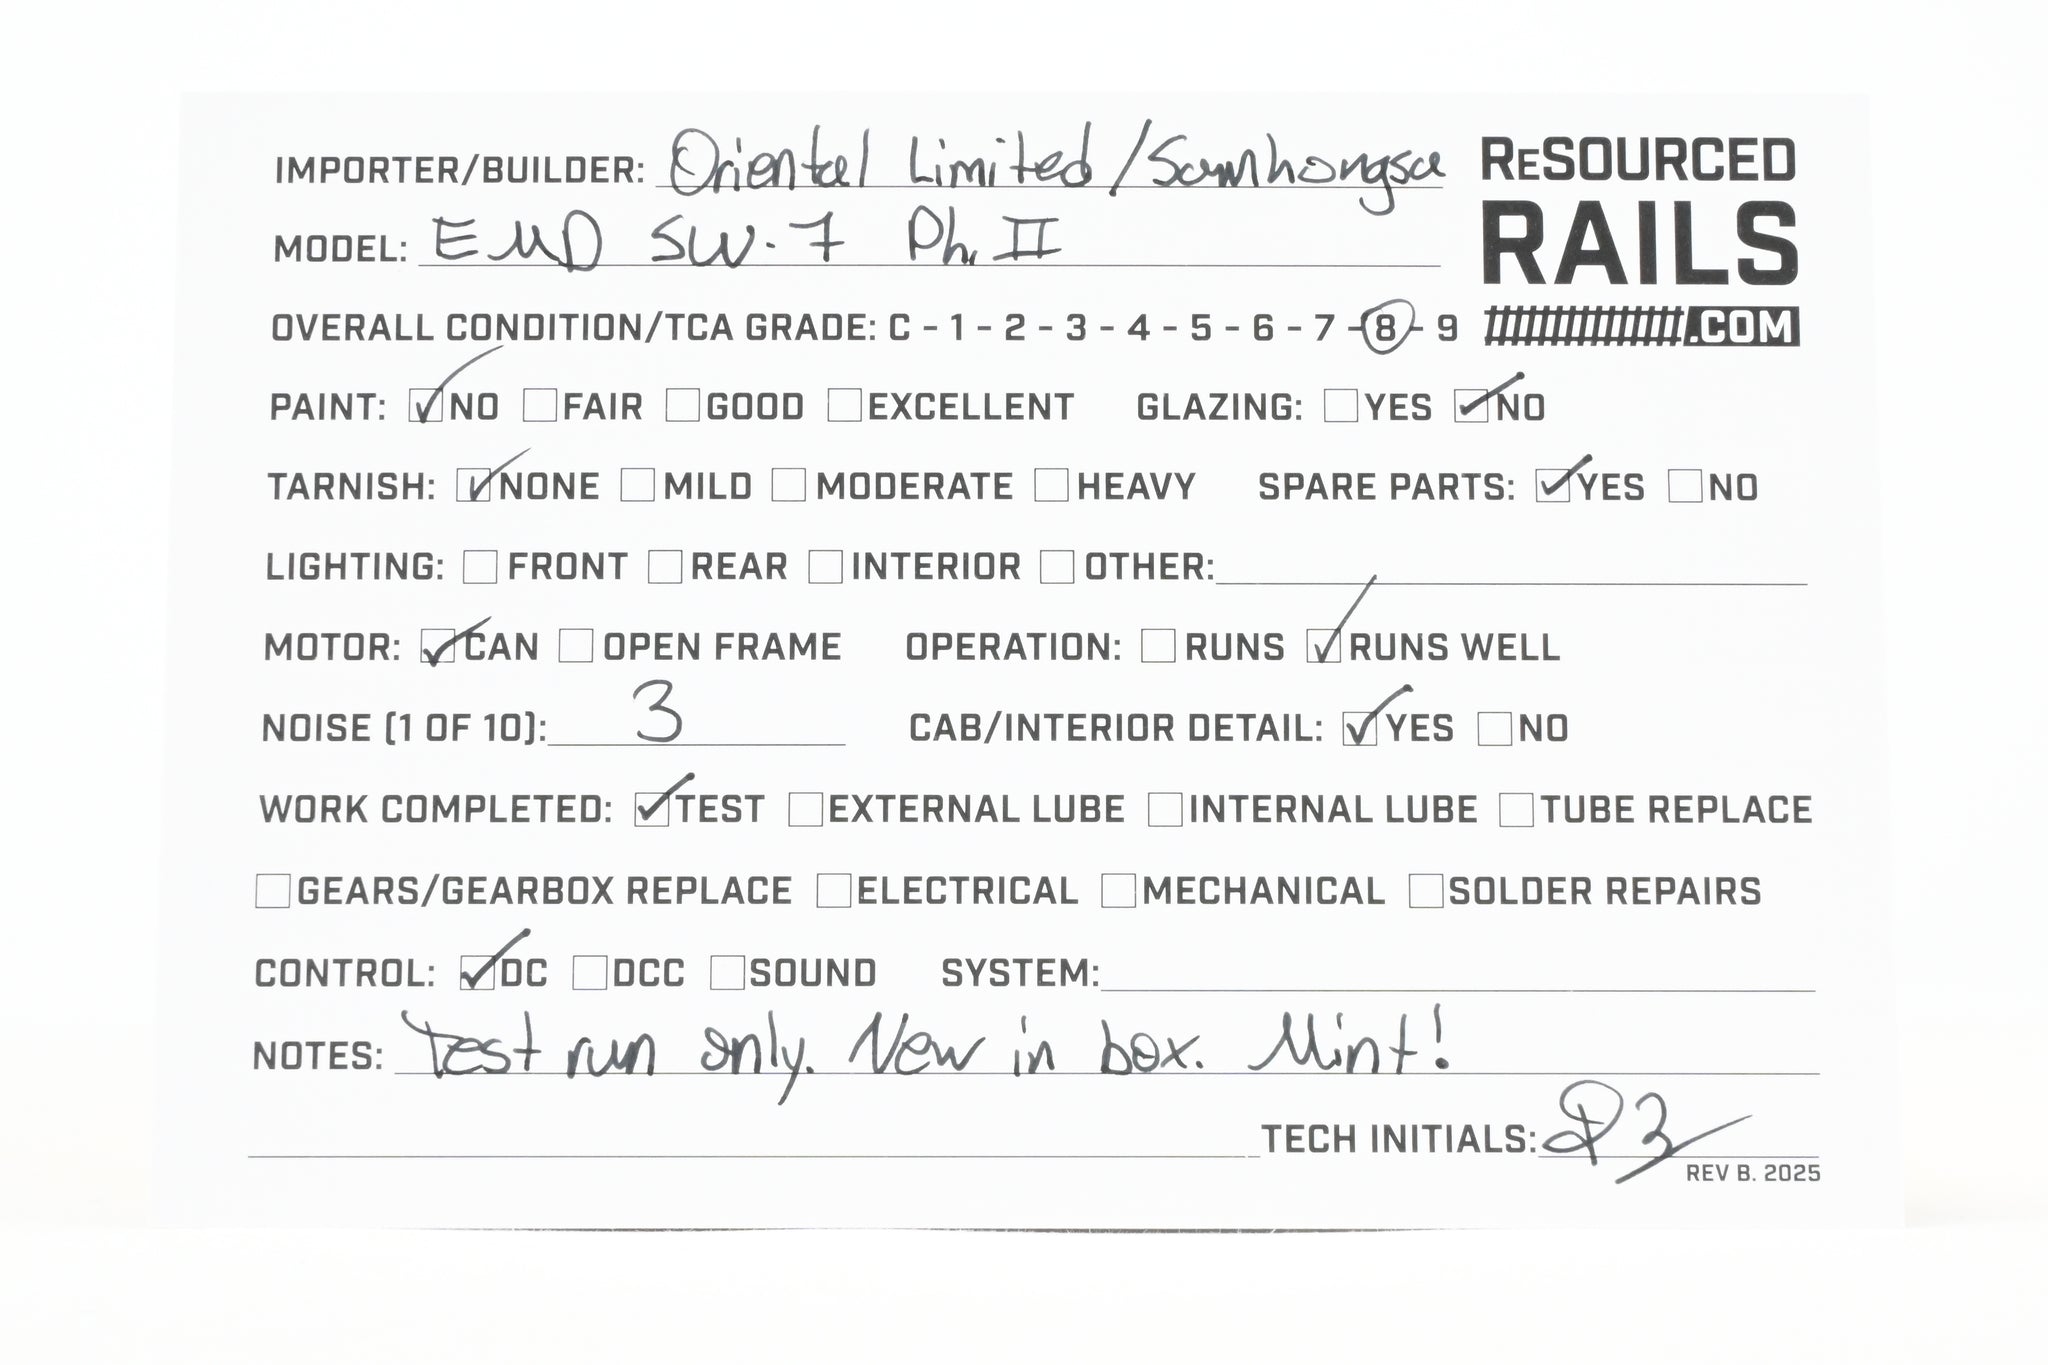 IMPORTER/BUILDER: Oriental Limited/Samhongsa
ReSOURCED
RAILS
.COM
MODEL: EMD SW-7 Ph. II
OVERALL CONDITION/TCA GRADE: C - 1 - 2 - 3 - 4 - 5 - 6 - 7 - 8 - 9
PAINT: NO FAIR GOOD EXCELLENT GLAZING: YES NO
TARNISH: NONE MILD MODERATE HEAVY SPARE PARTS: YES NO
LIGHTING: FRONT REAR INTERIOR OTHER:
MOTOR: CAN OPEN FRAME OPERATION: RUNS RUNS WELL
NOISE (1 OF 10): 3 CAB/INTERIOR DETAIL: YES NO
WORK COMPLETED: TEST EXTERNAL LUBE INTERNAL LUBE TUBE REPLACE
GEARS/GEARBOX REPLACE ELECTRICAL MECHANICAL SOLDER REPAIRS
CONTROL: DC DCC SOUND SYSTEM:
NOTES: Test run only. New in box. Mint!
TECH INITIALS:
REV B. 2025